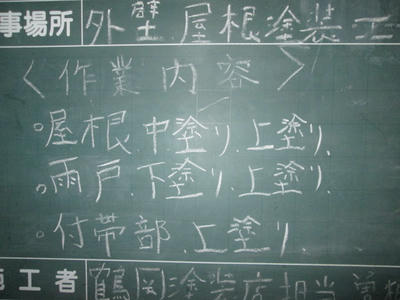 事場所 外壁.屋根塗装工
<作業内容>
。屋根.中塗り.上塗り.
。雨戸.下塗り.上塗り.
。付帯部.上塗り.
施工者 鶴岡塗装店担当